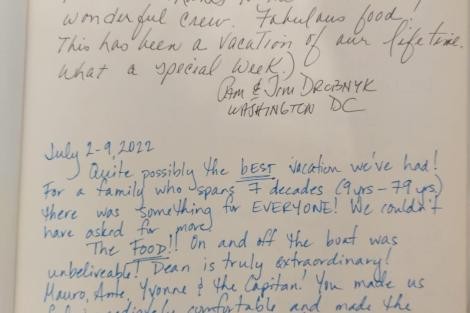 wonderful crew. Fabulous food!
This has been a vacation of our lifetime.
What a special week!)
Pam & Jim DROBNYK
WASHINGTON DC
July 2-9, 2022
Quite possibly the BEST vacation we've had!
For a family who spans 7 decades (9yrs - 79 yrs)
there was something for EVERYONE! We couldn't
have asked for more!
The FOOD!! On and off the boat was
unbeliveable! Dean is truly extraordinary!
Mauro, Ante, Yvonne & the Capitan! You made us
comfortable and made the